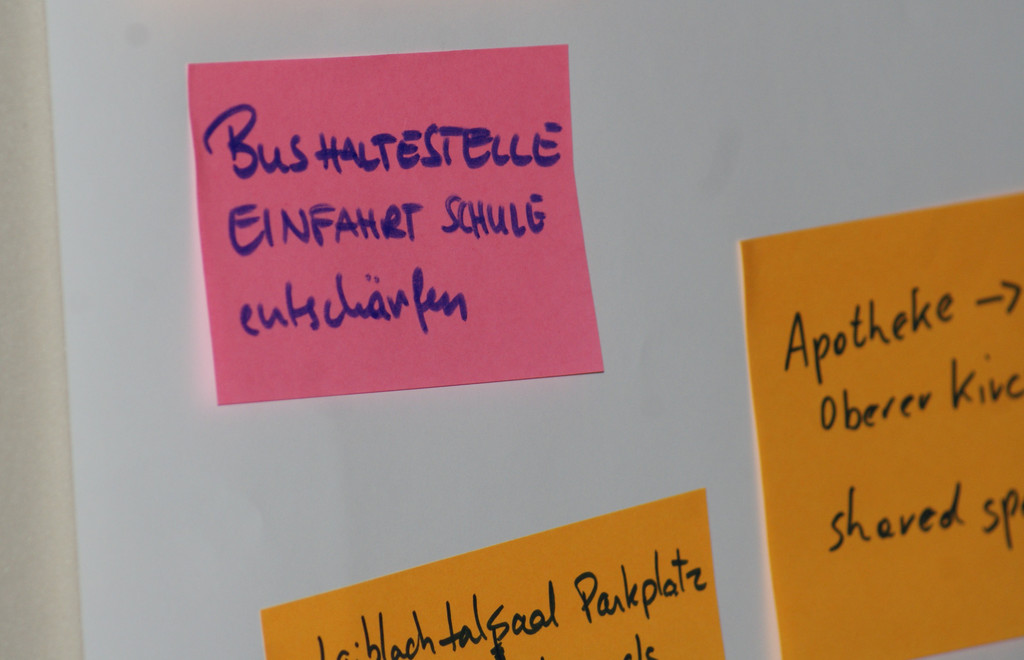 BUSHALTESTELLE
EINFAHRT SCHULE
entschärfen
Apotheke →
Oberer Kirc
shared spa
Leiblachtalsaal Parkplatz